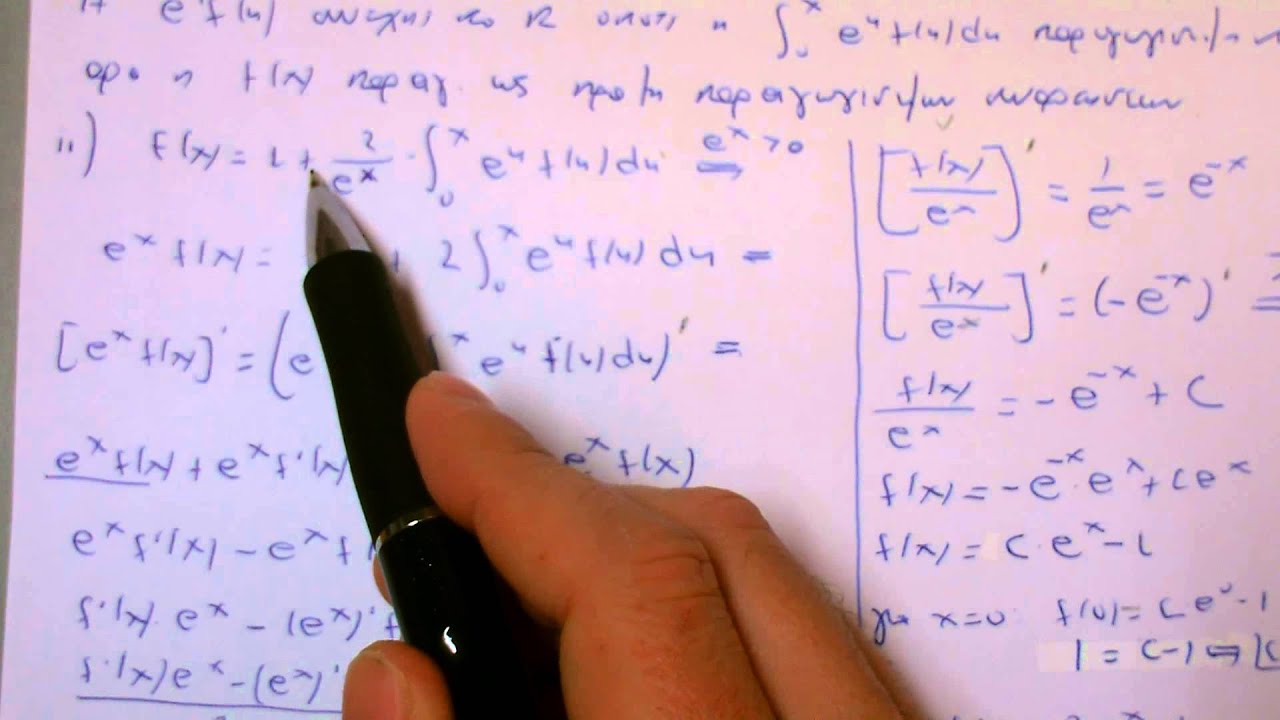 e^u f(u) συνεχης στο R οποτε η ∫₀^x e^u f(u)du παραγωγισιμη
αρα η f(x) παραγ. ως πραξη παραγωγισιμων συναρτησεων
ii) f(x) = 1 + 2/e^x · ∫₀^x e^u f(u) du ⇒ e^x > 0
e^x f(x) = + 2 ∫₀^x e^u f(u) du =
[e^x f(x)]' = (e ^x e^u f(u) du)' =
e^x f(x) + e^x f'(x) e^x f(x)
e^x f'(x) - e^x f
f'(x) e^x - (e^x)' f
f'(x) e^x - (e^x)'
[f(x)/e^x]' = 1/e^x = e^-x
[f(x)/e^x]' = (-e^-x)'
f(x)/e^x = -e^-x + C
f(x) = -e^-x · e^x + C e^x
f(x) = C · e^x - 1
για x=0 f(0) = C e^0 - 1
1 = C - 1 ⇔ [C